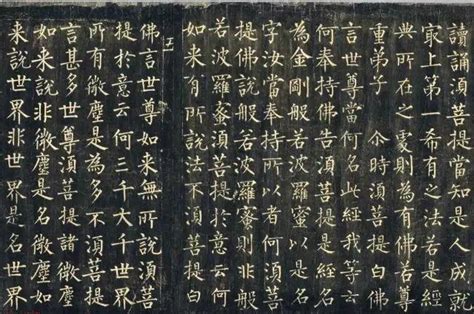 讀誦須菩提當知是人成就
最上第一希有之法若是經
典所在之處則為有佛若尊
重弟子 尒時須菩提白佛
言世尊當何名此經我等云
何奉持佛告須菩提是經名
為金剛般若波羅蜜以是名
字汝當奉持所以者何須菩
提佛說般若波羅蜜則非般
若波羅蜜須菩提於意云何
如來有所說法不須菩提白
五
佛言世尊如來無所說須菩
提於意云何三千大千世界
所有微塵是為多不須菩提
言甚多世尊須菩提諸微塵
如來說非微塵是名微塵如
來說世界非世界是名世界